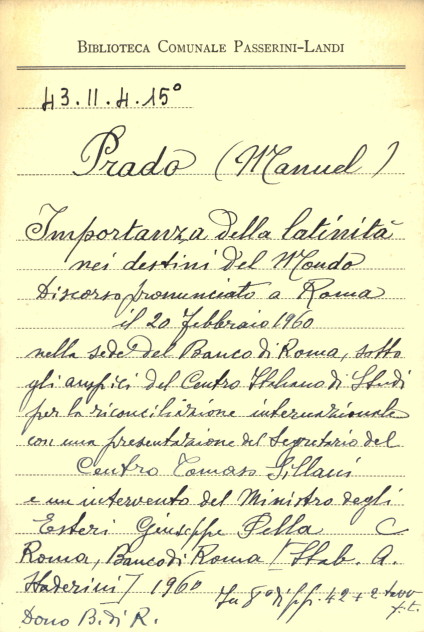 BIBLIOTECA COMUNALE PASSERINI-LANDI
43.II.4.15°
Prado (Manuel)
Importanza della latinità
nei destini del Mondo
Discorso pronunciato a Roma
il 20 febbraio 1960
nella sede del Banco di Roma, sotto
gli auspici del Centro Italiano di Studi
per la riconciliazione internazionale
con una presentazione del Segretario del
Centro Tomaso Sillani
e un intervento del Ministro degli
Esteri Giuseppe Pella C
Roma, Banco di Roma [Stab. A.
Staderini] 1960 In 8° di pp. 42 + 2 tavv
f.t.
Dono B. di R.